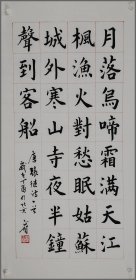 月落烏啼霜滿天江
楓漁火對愁眠姑蘇
城外寒山寺夜半鐘
聲到客船
唐張繼詩一首